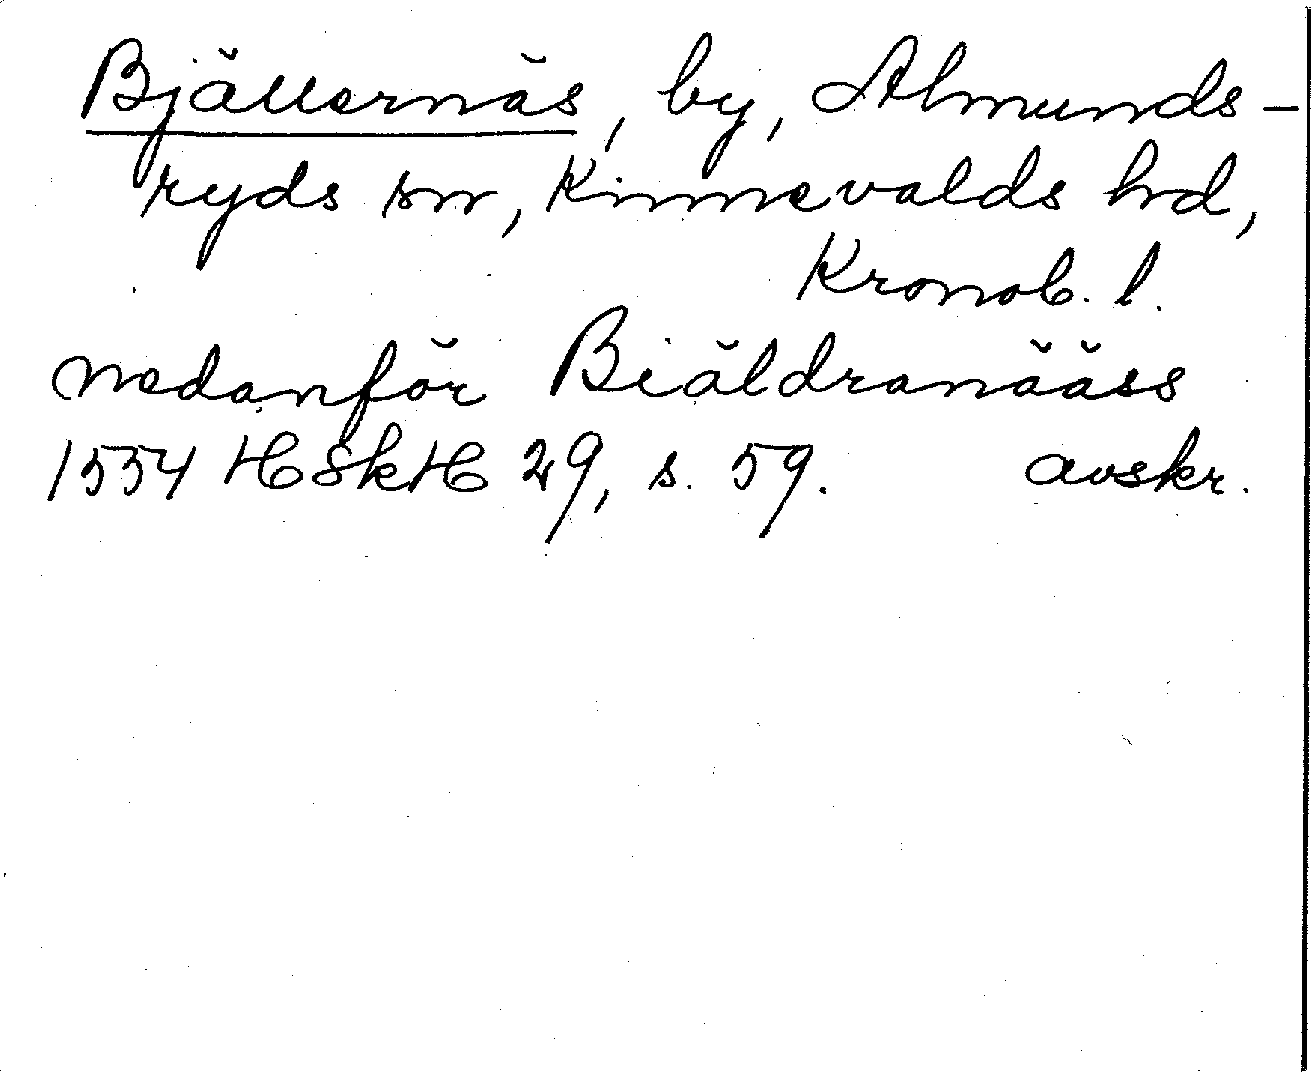 Bjällernäs, by, Almunds-
ryds sn, Kinnevalds hd,
Kronob. l.
nedanför Biäldranääss
1554 HSkH 29, s. 59. avskr.